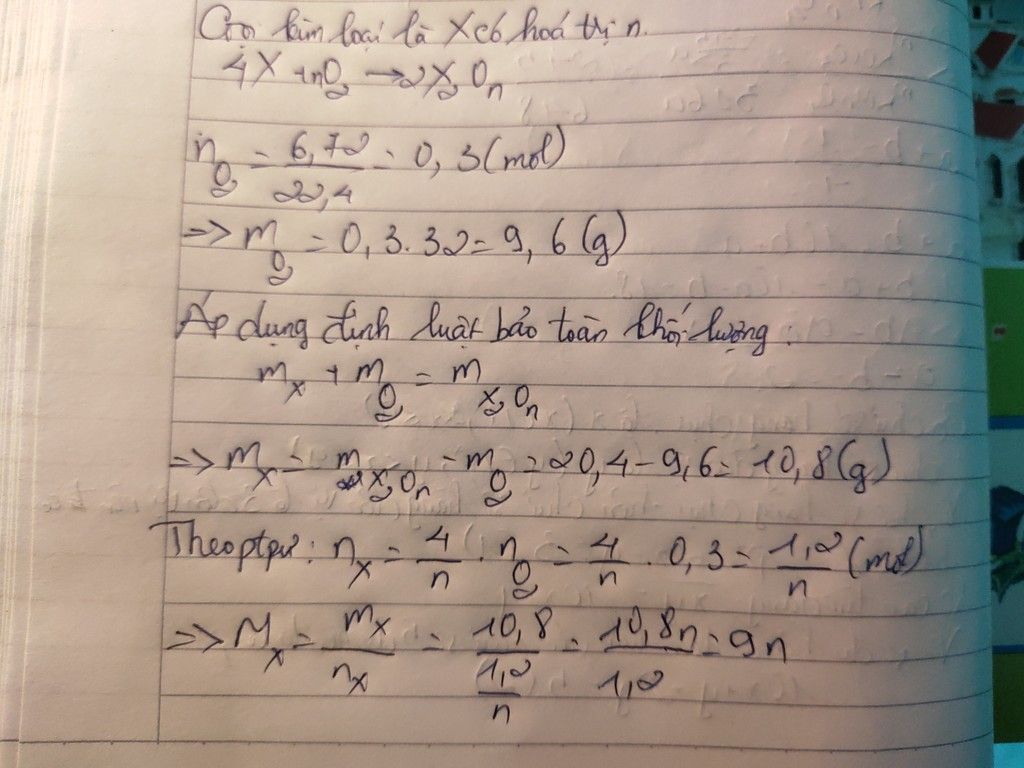 Gọi kim loại là X có hoá trị n.
4X + nO₂ → 2X₂Oₙ
n_O₂ = 6,72/22,4 = 0,3 (mol)
=> m_O₂ = 0,3.32 = 9,6 (g)
Áp dụng định luật bảo toàn khối lượng:
m_X + m_O₂ = m_X₂Oₙ
=> m_X = m_X₂Oₙ - m_O₂ = 20,4 - 9,6 = 10,8 (g)
Theo ptpư: n_X = 4/n . n_O₂ = 4/n . 0,3 = 1,2/n (mol)
=> M_X = m_X/n_X = 10,8/(1,2/n) = 10,8n/1,2 = 9n